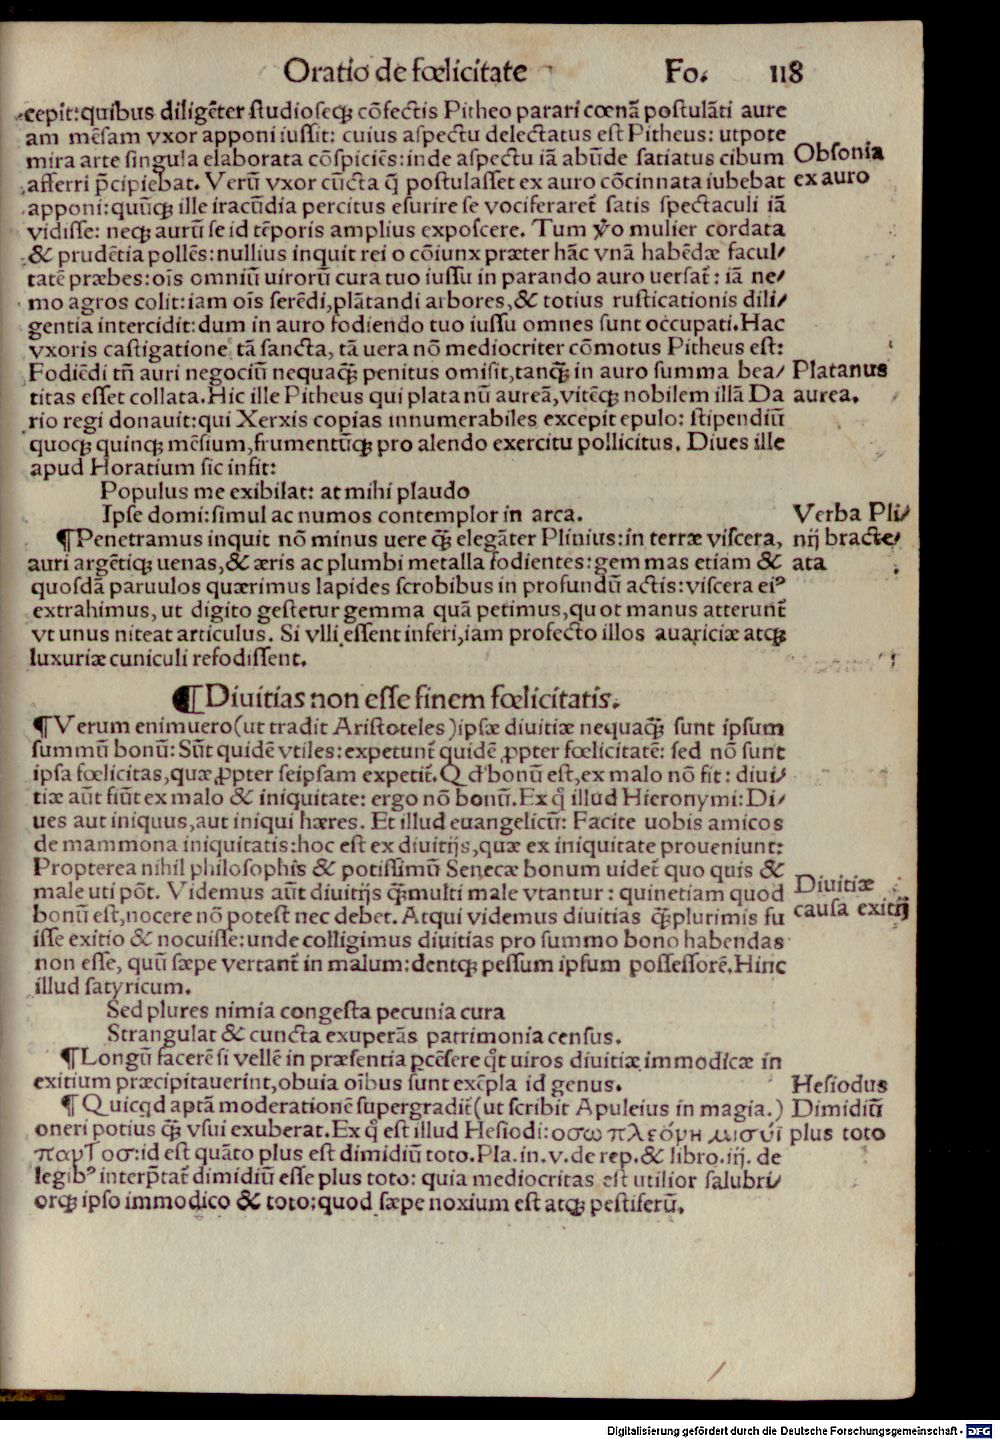 Oratio de fœlicitate Fo. 118
cepit:quibus diligẽter studioseqꝫ cõfectis Pitheo parari cœnã postulãti aure
am mẽsam vxor apponi iussit: cuius aspectu delectatus est Pitheus: utpote
mira arte singula elaborata cõspiciẽs:inde aspectu iã abũde satiatus cibum
Obsonia
afferri p̃cipiebat. Verũ vxor cũcta q̃ postulasset ex auro cõcinnata iubebat
ex auro
apponi:quũqꝫ ille iracũdia percitus esurire se vociferaret̃ satis spectaculi iã
vidisse: neqꝫ aurũ se id tẽporis amplius exposcere. Tum ṽo mulier cordata
& prudẽtia pollẽs:nullius inquit rei o cõiunx præter hãc vnã habẽdæ facul/
tatẽ præbes:oĩs omniũ uirorũ cura tuo iussu in parando auro uersat̃: iã ne/
mo agros colit:iam oĩs serẽdi,plãtandi arbores,& totius rusticationis dili/
gentia intercidit:dum in auro fodiendo tuo iussu omnes sunt occupati.Hac
vxoris castigatione tã sancta, tã uera nõ mediocriter cõmotus Pitheus est:
Fodiẽdi tñ auri negociũ nequaqꝫ̃ penitus omisit,tanqꝫ̃ in auro summa bea/
Platanus
titas esset collata.Hic ille Pitheus qui platanũ aureã,vitẽqꝫ nobilem illã Da
aurea.
rio regi donauit:qui Xerxis copias innumerabiles excepit epulo: stipendiũ
quoqꝫ quinqꝫ mẽsium,frumentũqꝫ pro alendo exercitu pollicitus. Diues ille
apud Horatium sic infit:
Populus me exibilat: at mihi plaudo
Ipse domi:simul ac numos contemplor in arca.
Verba Pli/
¶Penetramus inquit nõ minus uere qꝫ̃ elegãter Plinius:in terræ viscera,
nij bracte/
auri argẽtiqꝫ uenas,& æris ac plumbi metalla fodientes:gemmas etiam &
ata
quosdã paruulos quærimus lapides scrobibus in profundũ actis:viscera eiꝰ
extrahimus, ut digito gestetur gemma quã petimus,quot manus atterunt̃
vt unus niteat articulus. Si vlli essent inferi,iam profecto illos auariciæ atqꝫ
luxuriæ cuniculi refodissent.
¶Diuitias non esse finem fœlicitatis.
¶Verum enimuero(ut tradit Aristoteles)ipsæ diuitiæ nequaqꝫ̃ sunt ipsum
summũ bonũ:Sũt quidẽ vtiles:expetunt̃ quidẽ ꝓpter fœlicitatẽ: sed nõ sunt
ipsa fœlicitas,quæ ꝓpter seipsam expetit̃.Qd' bonũ est,ex malo nõ fit: diui/
tiæ aũt fiũt ex malo & iniquitate: ergo nõ bonũ.Ex q̊ illud Hieronymi:Di/
ues aut iniquus,aut iniqui hæres. Et illud euangelicũ: Facite uobis amicos
de mammona iniquitatis:hoc est ex diuitijs,quæ ex iniquitate proueniunt:
Propterea nihil philosophis & potissimũ Senecæ bonum uidet̃ quo quis &
male uti põt. Videmus aũt diuitijs qꝫ̃multi male vtantur: quinetiam quod
Diuitiæ
bonũ est,nocere nõ potest nec debet. Atqui videmus diuitias qꝫ̃plurimis fu
causa exitij
isse exitio & nocuisse:unde colligimus diuitias pro summo bono habendas
non esse, quũ sæpe vertant̃ in malum:dentqꝫ pessum ipsum possessorẽ.Hinc
illud satyricum.
Sed plures nimia congesta pecunia cura
Strangulat & cuncta exuperãs patrimonia census.
¶Longũ facerẽ si vellẽ in præsentia pcẽsere q̊t uiros diuitiæ immodicæ in
exitium præcipitauerint,obuia oĩbus sunt exẽpla id genus.
Hesiodus
¶Quicqd aptã moderationẽ supergradit̃(ut scribit Apuleius in magia.)
Dimidiũ
oneri potius qꝫ̃ vsui exuberat.Ex q̊ est illud Hesiodi:οσω πλεόνη μισυϊ
plus toto
παντοσ:id est quãto plus est dimidiũ toto.Pla.in.v.de rep.& libro.iij. de
legibꝰ interp̃tat̃ dimidiũ esse plus toto: quia mediocritas est utilior salubri/
orqꝫ ipso immodico & toto:quod sæpe noxium est atqꝫ pestiferũ.
Digitalisierung gefördert durch die Deutsche Forschungsgemeinschaft - DFG